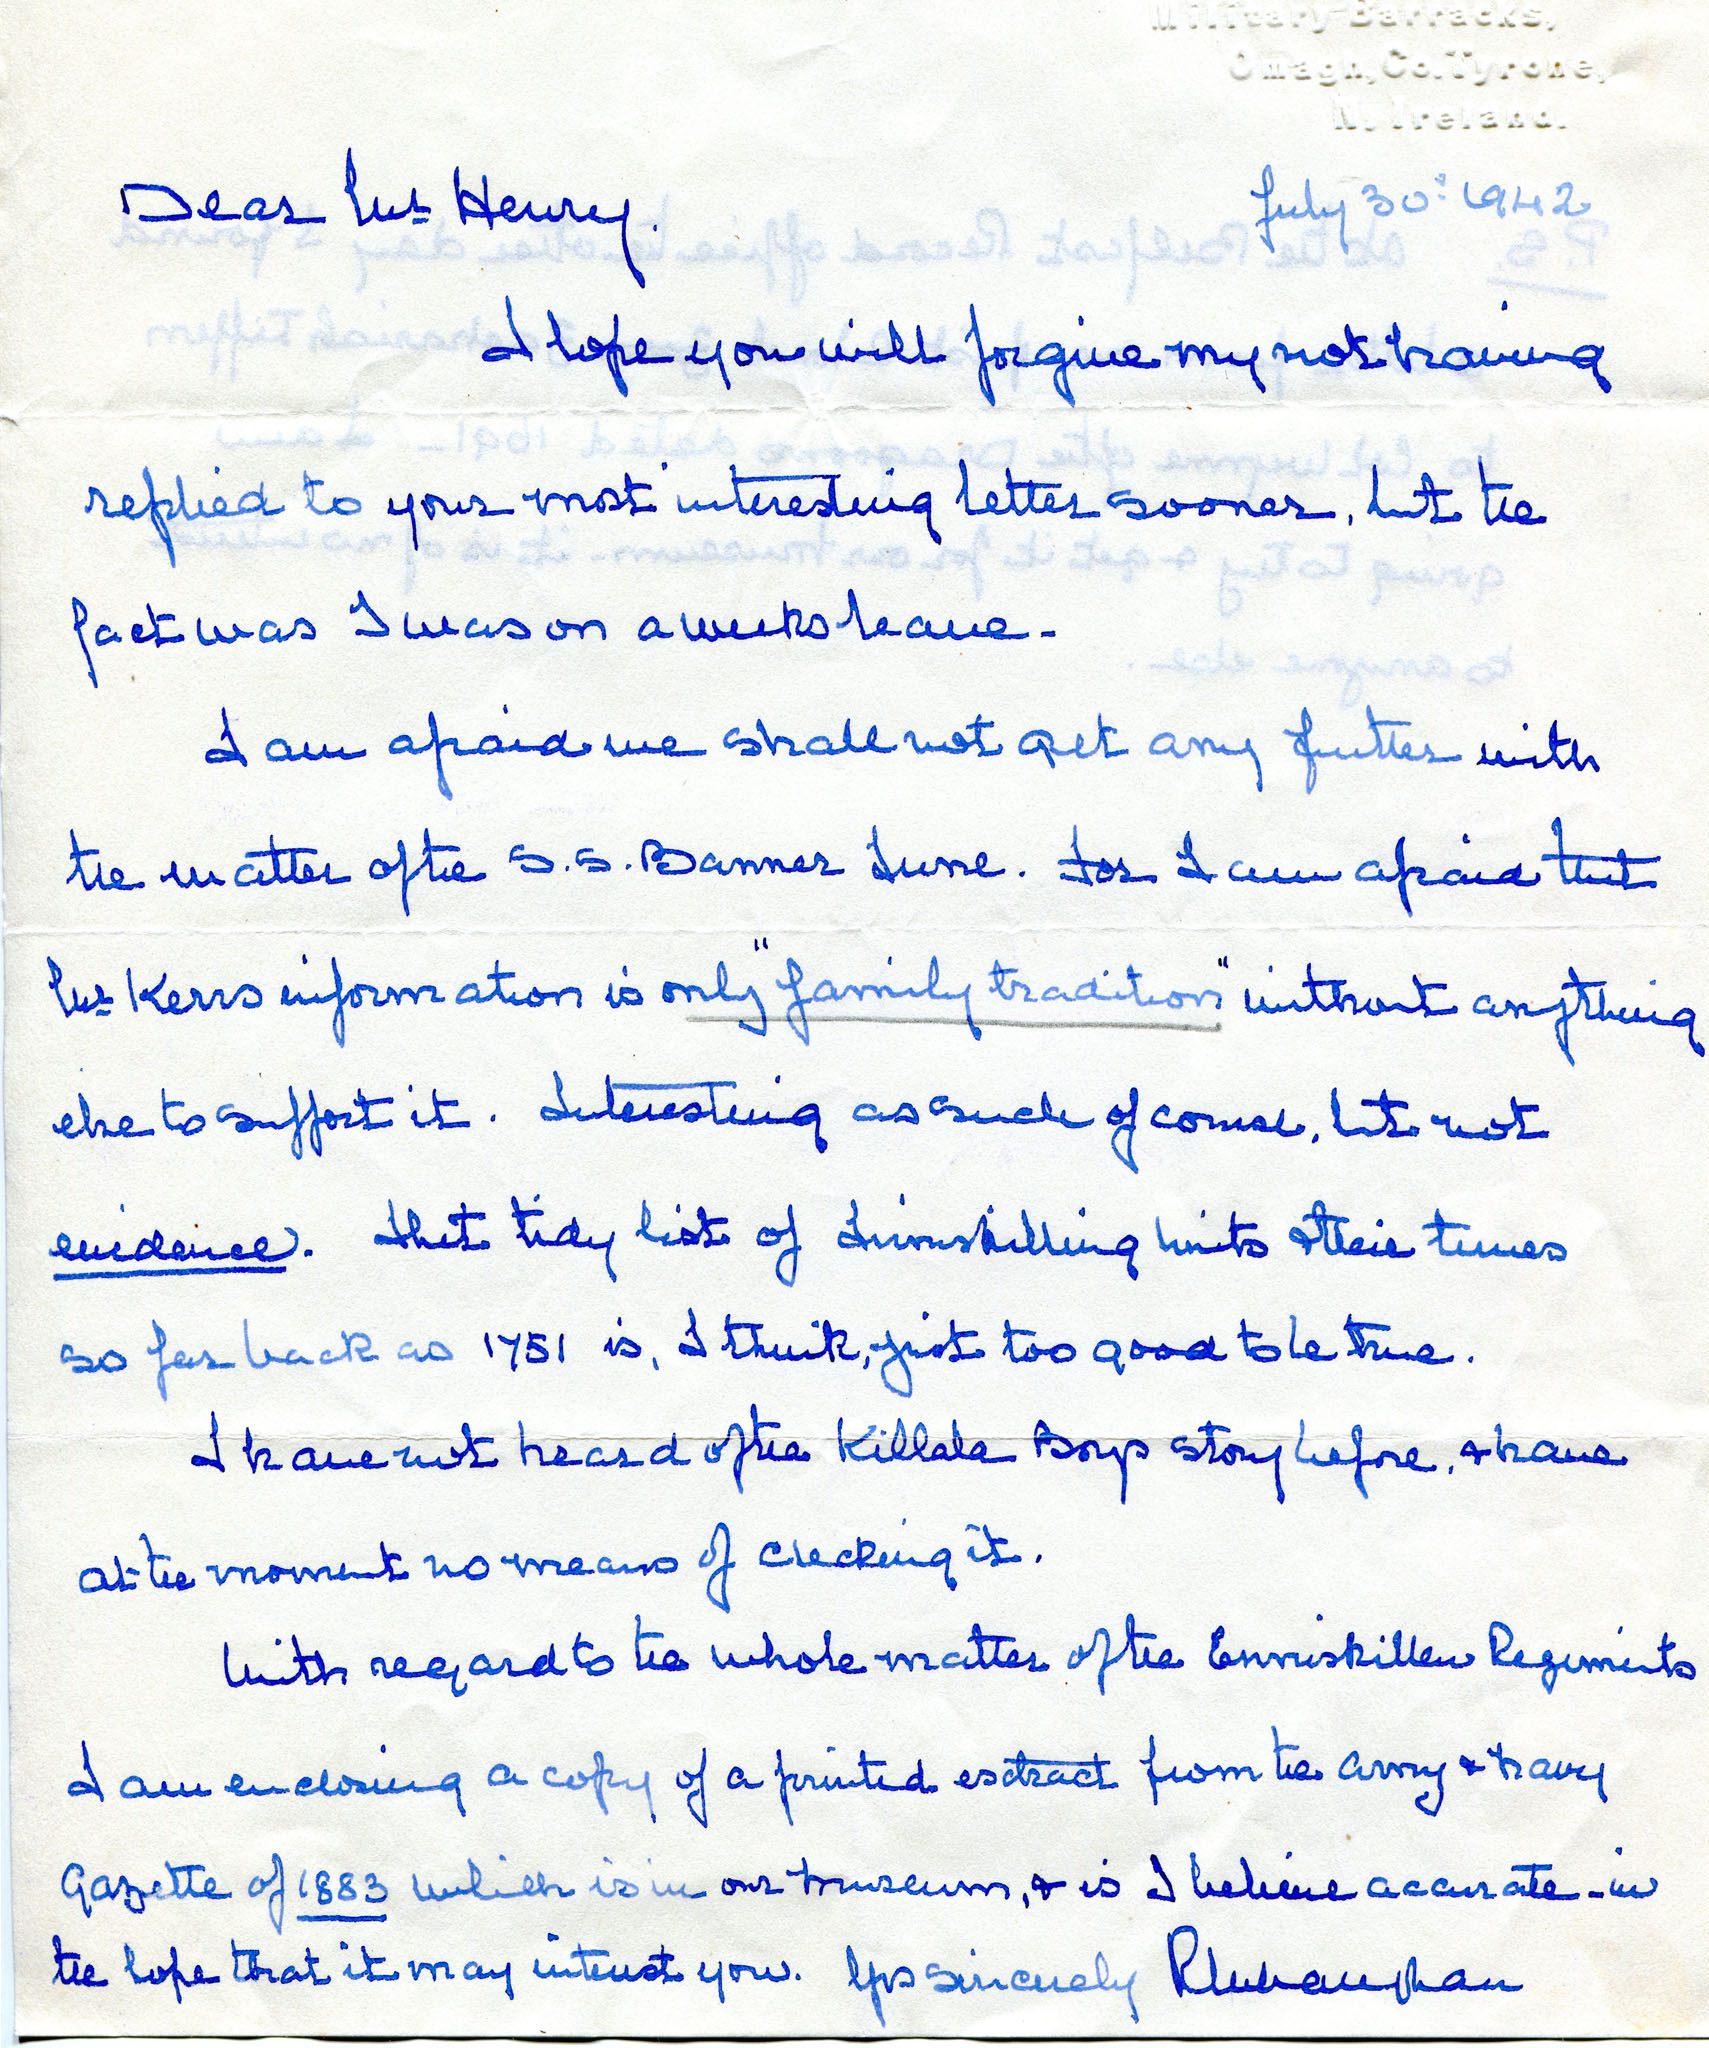 Military Barracks,
Omagh, Co. Tyrone,
N. Ireland.
Dear Mr Henry. July 30: 1942
I hope you will forgive my not having
replied to your most interesting letter sooner, but the
fact was I was on a weeks leave -
I am afraid we shall not get any further with
the matter of the S.S. Banner Tune. For I am afraid that
Mr Kerrs information is only "family tradition" without anything
else to support it. Interesting as such of course, but not
evidence. That tidy list of Inniskilling Units & their tunes
so far back as 1751 is, I think, just too good to be true.
I have not heard of the Killala Boys story before, & have
at the moment no means of checking it.
With regard to the whole matter of the Enniskillen Regiments
I am enclosing a copy of a printed extract from the Army & Navy
Gazette of 1883 which is in our Museum, & is I believe accurate - in
the hope that it may interest you. Yrs sincerely
P.S. At the Belfast Record office the other day I found
Tiffin
to let me the Dragoons dated 1691 - I am
going to try & get it for our Museum - it is of no interest
to anyone else.